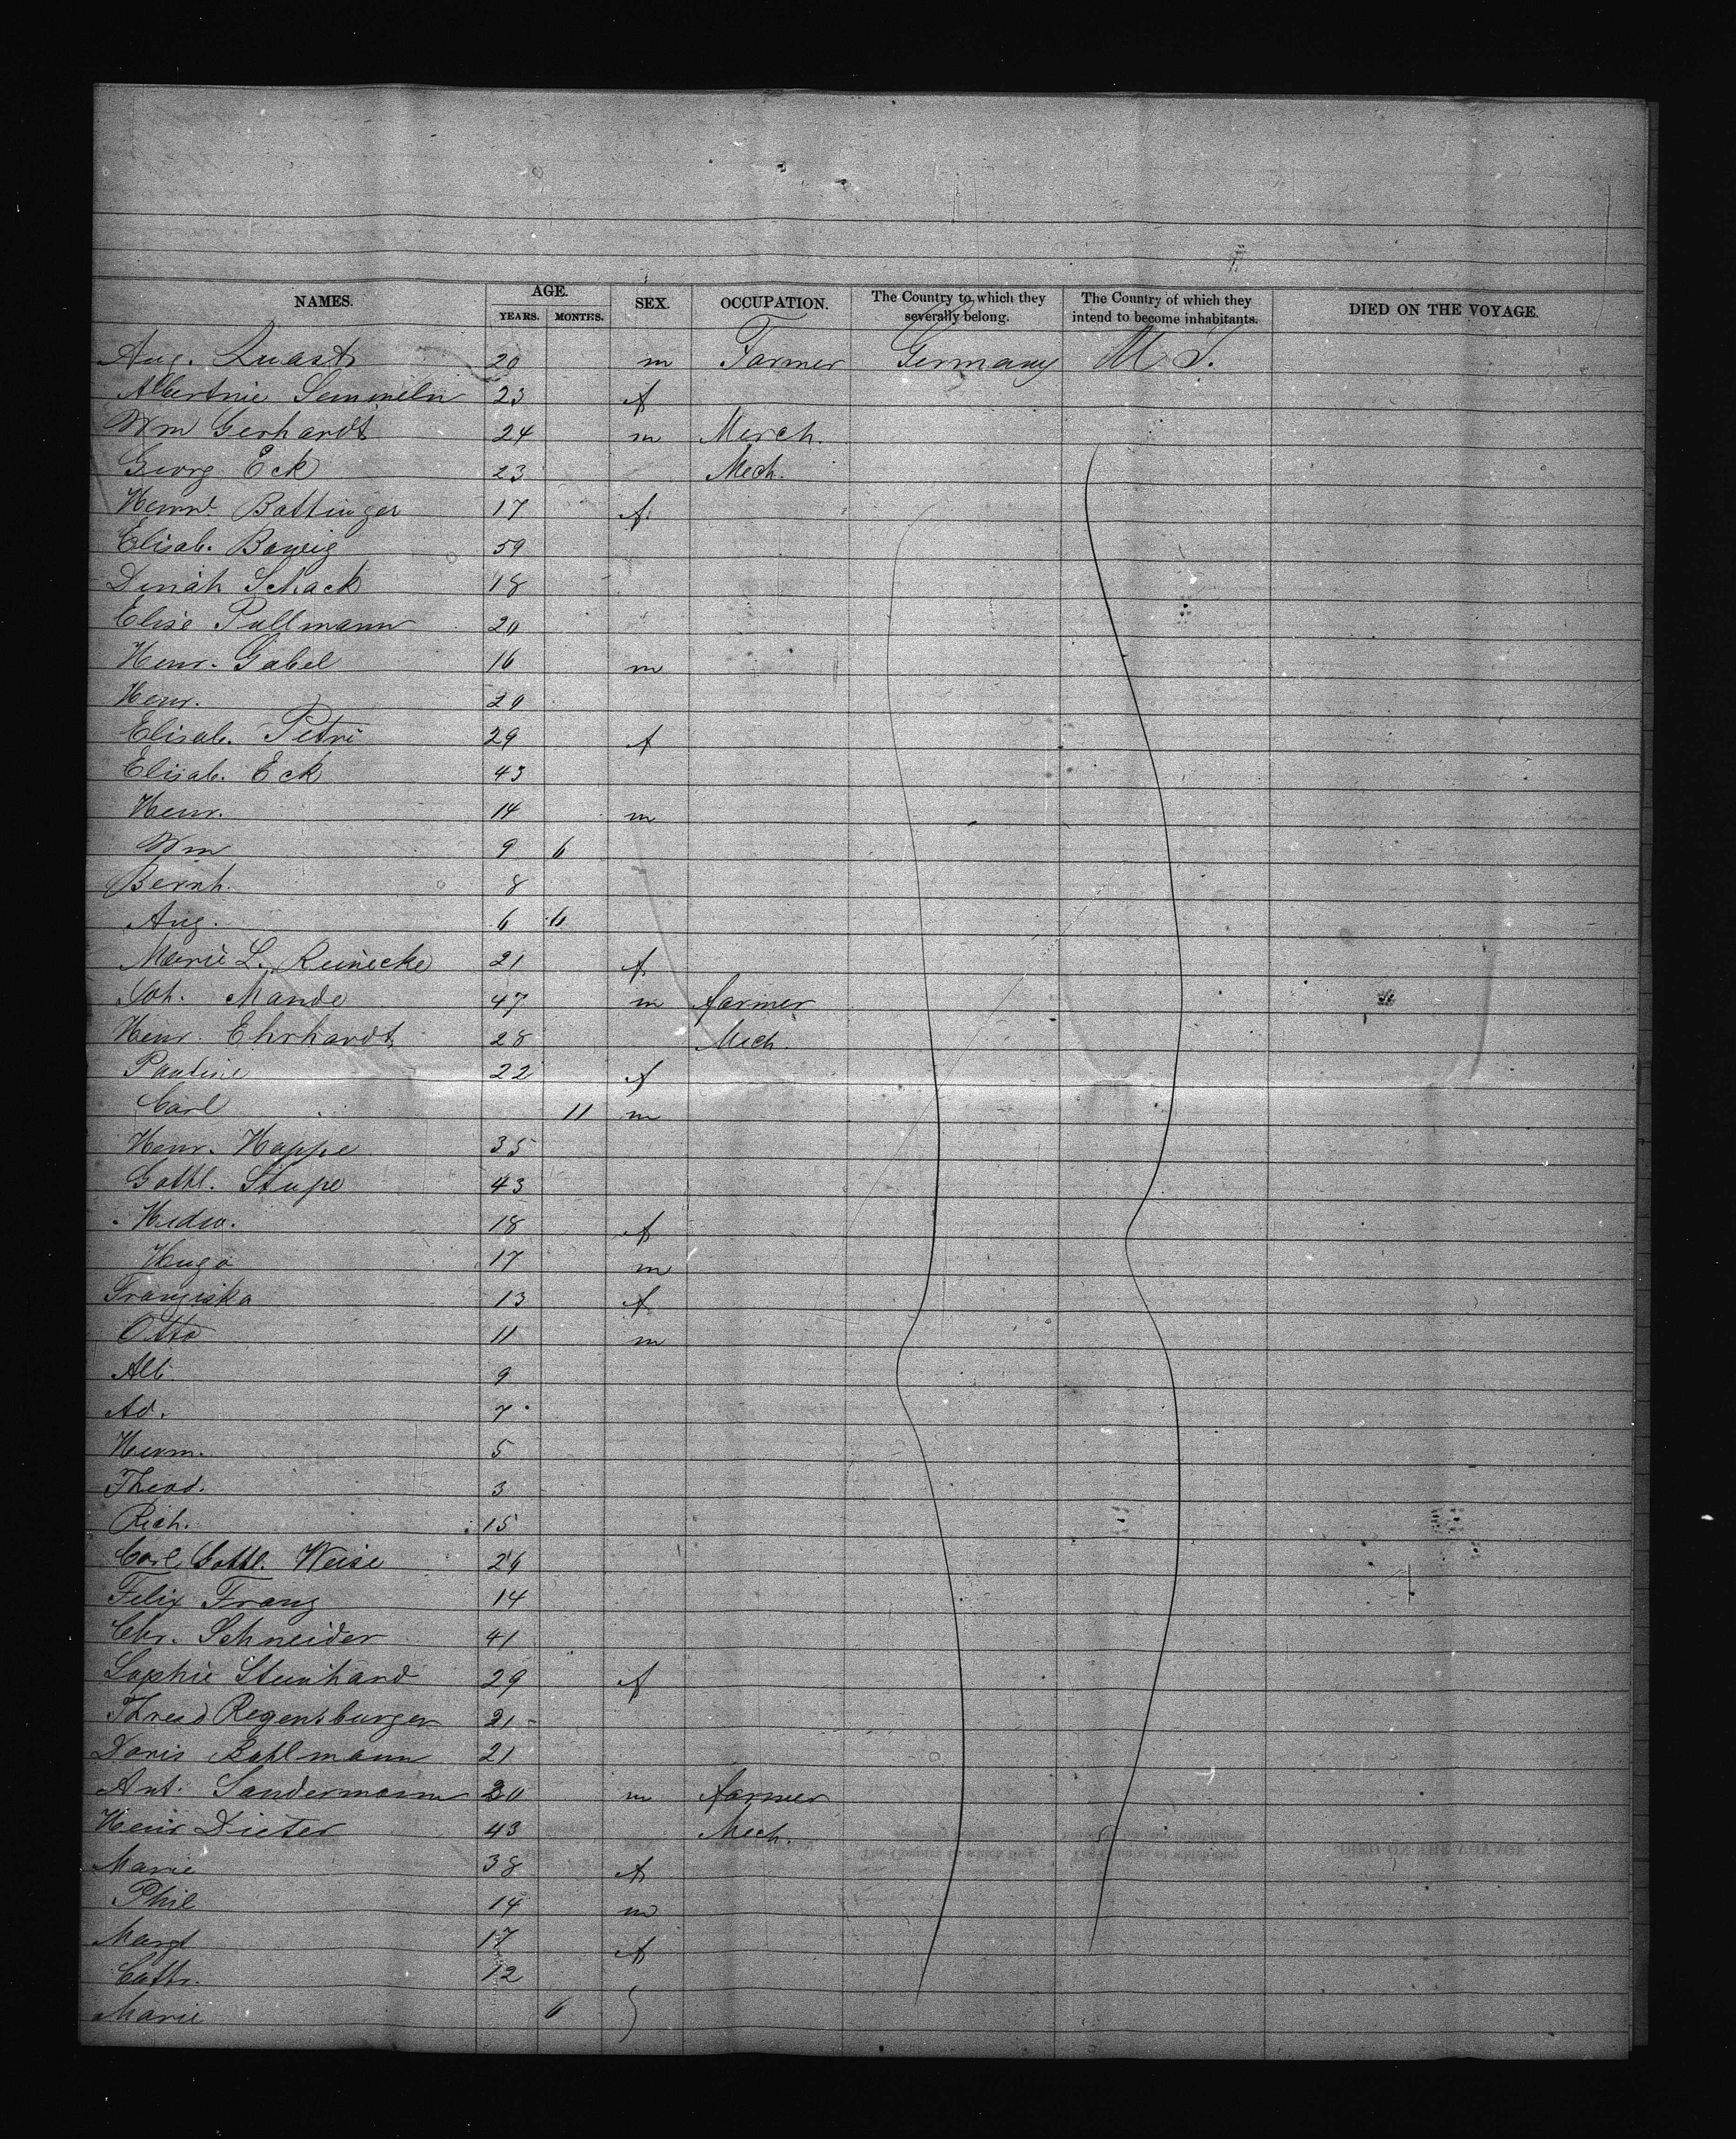 NAMES. AGE. YEARS. MONTHS. SEX. OCCUPATION. The Country to which they severally belong. The Country of which they intend to become inhabitants. DIED ON THE VOYAGE.
Aug. Quast 20 m Farmer Germany U S.
Albertine 23 f
Wm Gerhardt 24 m Merch.
Georg Eck 23 Mech.
Battinger 17 f
Elisab. 59
Dinah Schack 18
Elise Pullmann 20
Henr. Gabel 16 m
Henr. 29
Elisab. Petri 29 f
Elisab. Eck 43
Henr. 14 m
Wm 9 6
Bernh. 8
Aug. 6 6
Marie L. Reinecke 21 f
Joh. Mande 47 m farmer
Henr. Ehrhardt 28 Mech.
Pauline 22 f
Carl 11 m
Henr. Happe 35
Gottl. Stupe 43
Hedw. 18 f
Hugo 17 m
Franziska 13 f
Otto 11 m
Alb. 9
Ad. 7
Herm. 5
Theod. 3
Rich. 15
Carl Gottl. Weise 26
Felix Franz 14
Chr. Schneider 41
Sophie Steinhard 29 f
Regensburger 21
Doris Bahlmann 21
Ant. Sandermann 20 m farmer
Henr Dieter 43 Mech.
Marie 38 f
Phil 14 m
Margt 17 f
Cath. 12
Marie 6